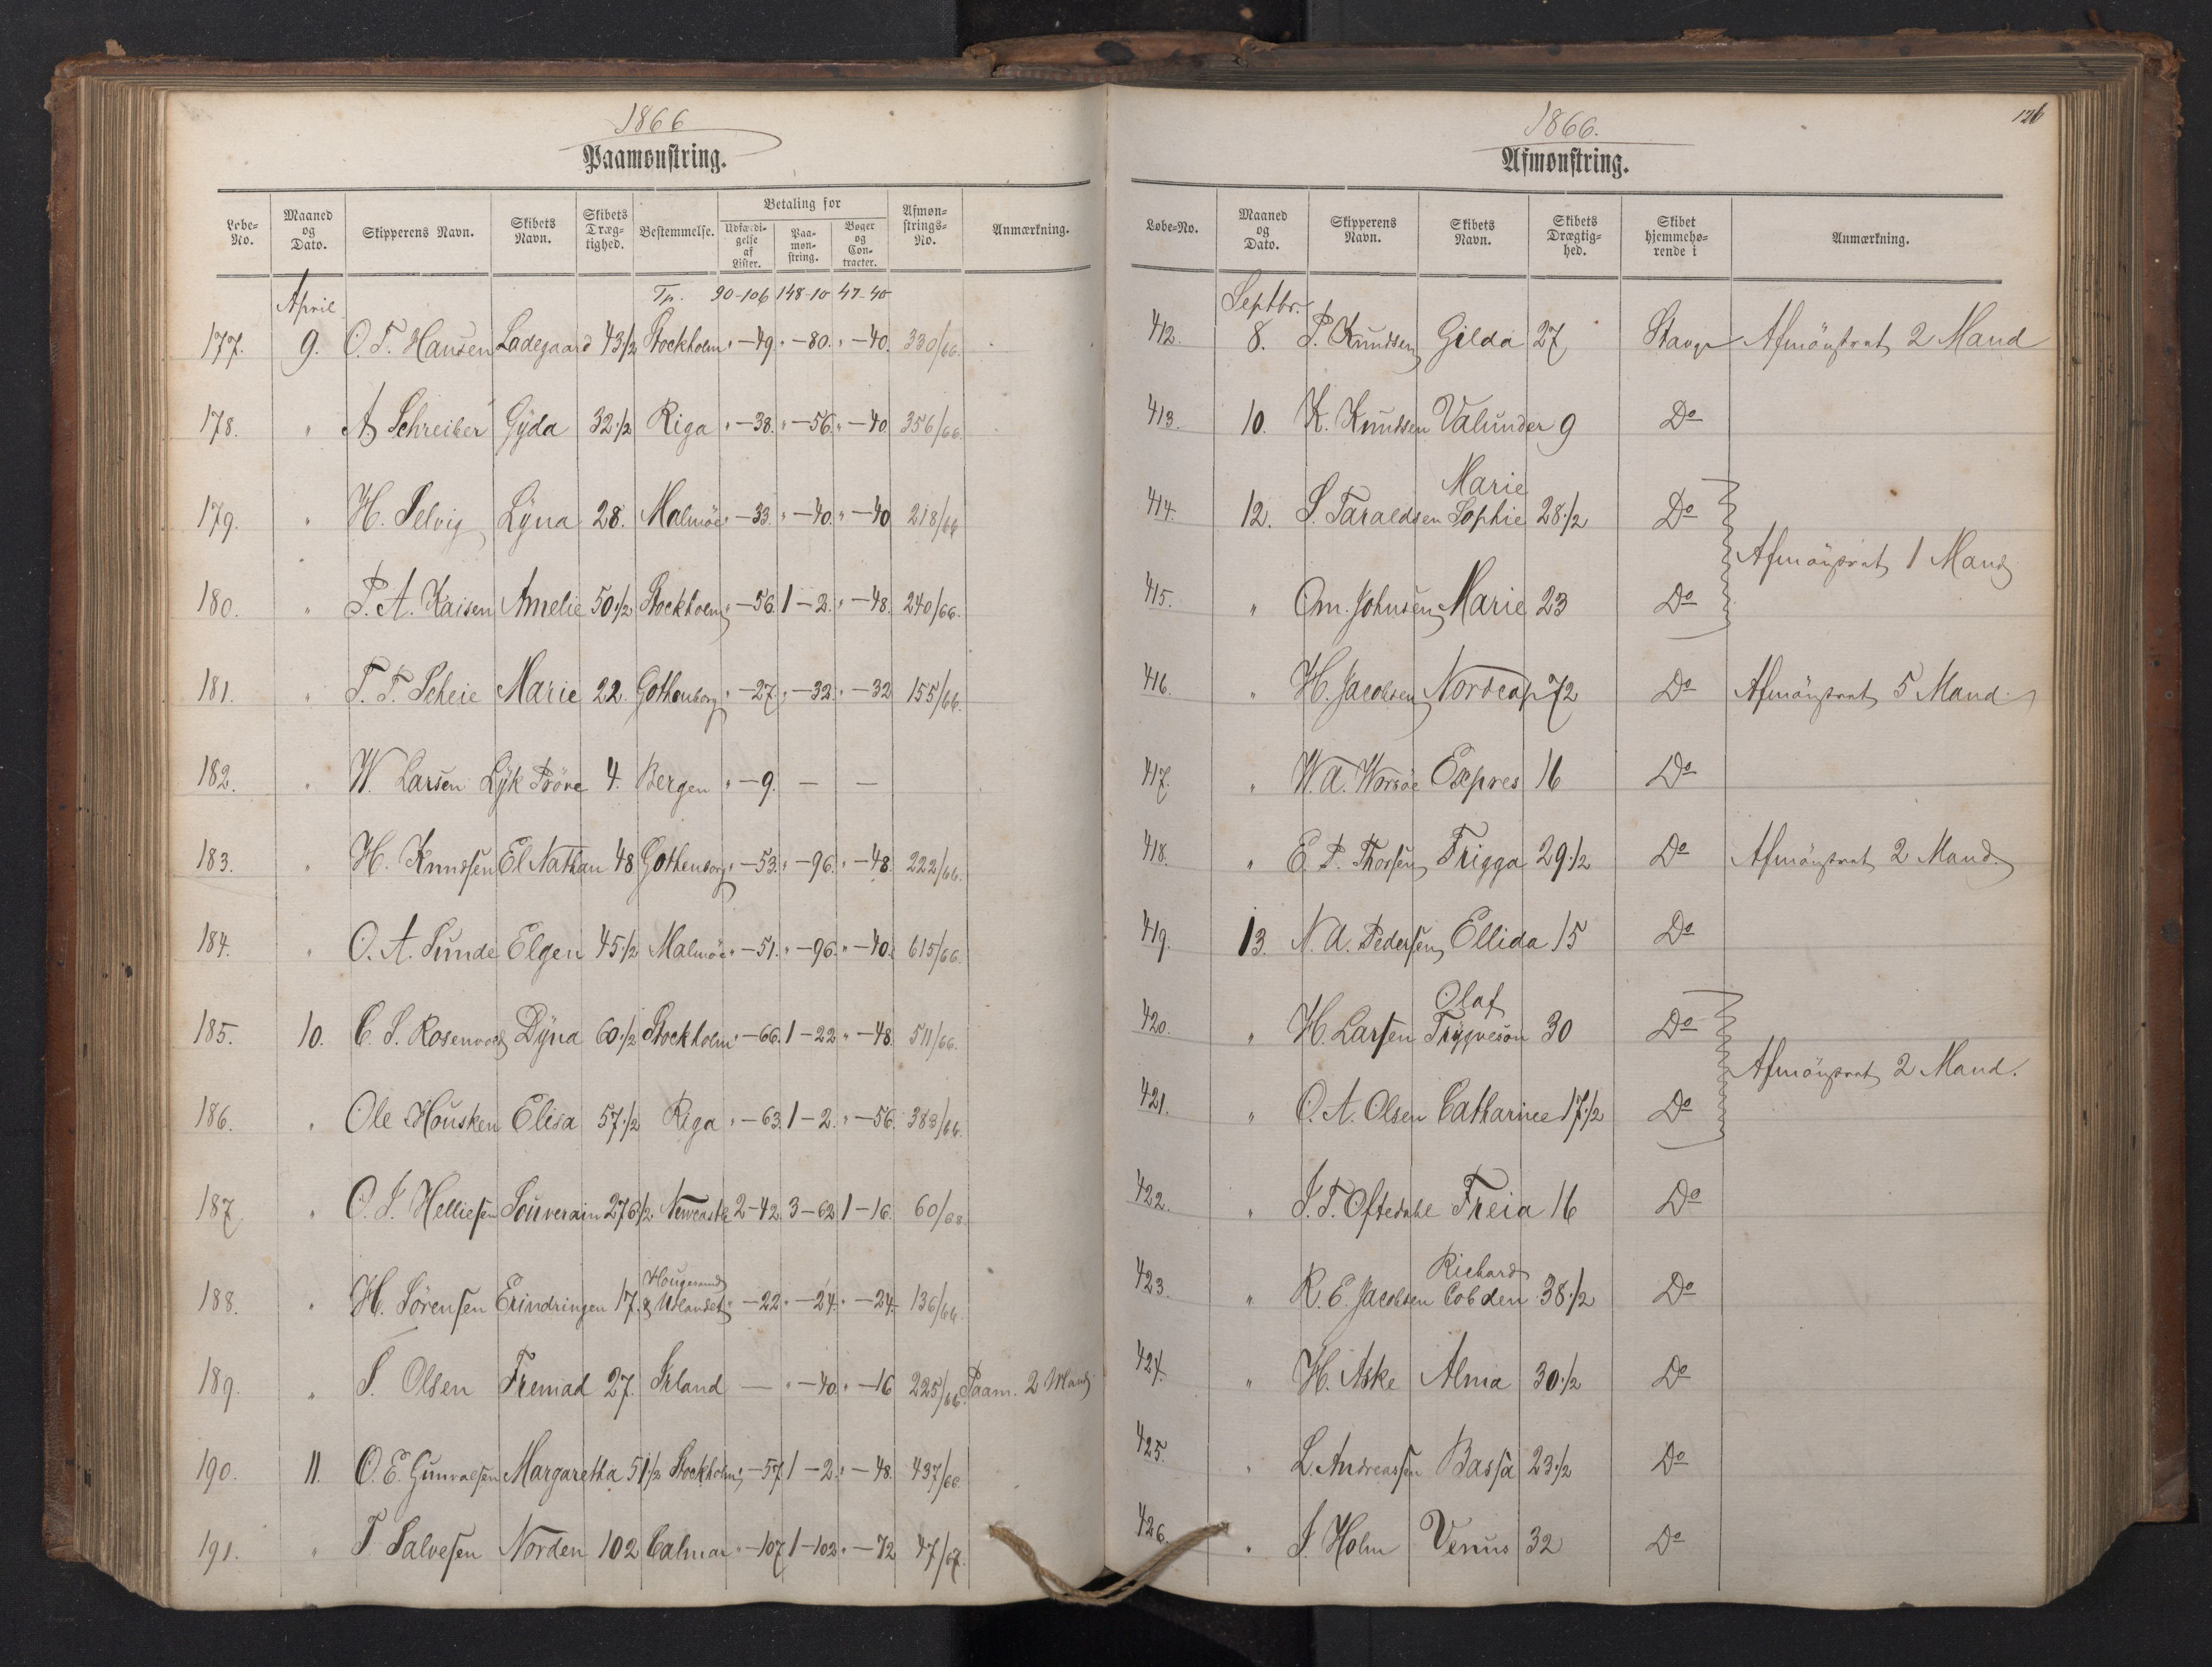 1866
Paamønstring.
Løbe-No. | Maaned og Dato. | Skipperens Navn. | Skibets Navn. | Skibets Drægtighed. | Bestemmelse. | Betaling for | Udfærdigelse af Lister. | Paamønstring. | Bøger og Contracter. | Afmønstrings-No. | Anmærkning.
April Tp. 90-106 148-10 47-40
177. 9. O. T. Hansen Ladegaard 43½ Stockholm " -49. " -80. " -40. 330/66.
178. " A. Schreiber Gÿda 32½ Riga " -38. " -56. " -40 356/66.
179. " H. Selvig Lÿna 28. Malmöe " -33. " -40. " -40 218/66
180. " P. A. Kaisen Amelie 50½ Stockholm " -56. 1-2. " -48. 240/66.
181. " T. T. Scheie Marie 22. Gothenborg " -27. " -32. " -32 155/66.
182. " W. Larsen Lÿk Pröve 4. Bergen " -9. — —
183. " H. Knudsen El Nathan 48 Gothenborg " -53. " -96. " -48. 222/66.
184. " O. A. Sunde Elgen 45½ Malmöe " -51. " -96. " -40. 615/66.
185. 10. C. S. Dÿna 60½ Stockholm " -66. 1-22 " -48. 511/66.
186. " Ole Housken Elisa 57½ Riga " -63. 1-2. " -56. 383/66.
187 " O. J. Helliesen Souverain 276½ Newcastle 2-42. 3-62 1-16. 60/68.
188. " H. Sörensen Erindringen 17. Hougesund & Udlandet " -22. " -24. " -24. 136/66.
189. " S. Olsen Fremad 27. Irland — " -40. " -16 225/66. Paam. 2 Mand
190. 11. O. E. Gunvalsen Margaretha 51½ Stockholm " -57. 1-2. " -48. 437/66.
191. " T. Salvesen Norden 102 Calmar " -107 1-102. " -72 47/67.
1866.
126
Afmønstring.
Løbe-No. | Maaned og Dato. | Skipperens Navn. | Skibets Navn. | Skibets Drægtighed. | Skibet hjemmehørende i | Anmærkning.
Septbr.
412. 8. P. Knudsen Gilda 27 Stavgr Afmönstret 2 Mand
413. 10. K. Knudsen Valunder 9 Do
414. 12. S. Taraldsen Marie Sophie 28½ Do
Afmönstret 1 Mand
415. " Om. Johnsen Marie 23 Do
416. " H. Jacobsen Nordcap 72 Do Afmönstret 5 Mand.
417. " W. A. Worsöe Expres 16 Do
418. " E. P. Thorsen Frigga 29½ Do Afmönstret 2 Mand.
419. 13. N. A. Pedersen Ellida 15 Do
420. " H. Larsen Olaf Trÿgveson 30 Do
Afmönstret 2 Mand.
421. " O. A. Olsen Catharine 17½ Do
422. " J. T. Oftedahl Freia 16 Do
423. " R. E. Jacobsen Richard Cobden 38½ Do
424. " H. Aske Alma 30½ Do
425. " L. Andreassen Bassa 23½ Do
426. " J. Holm Venus 32 Do